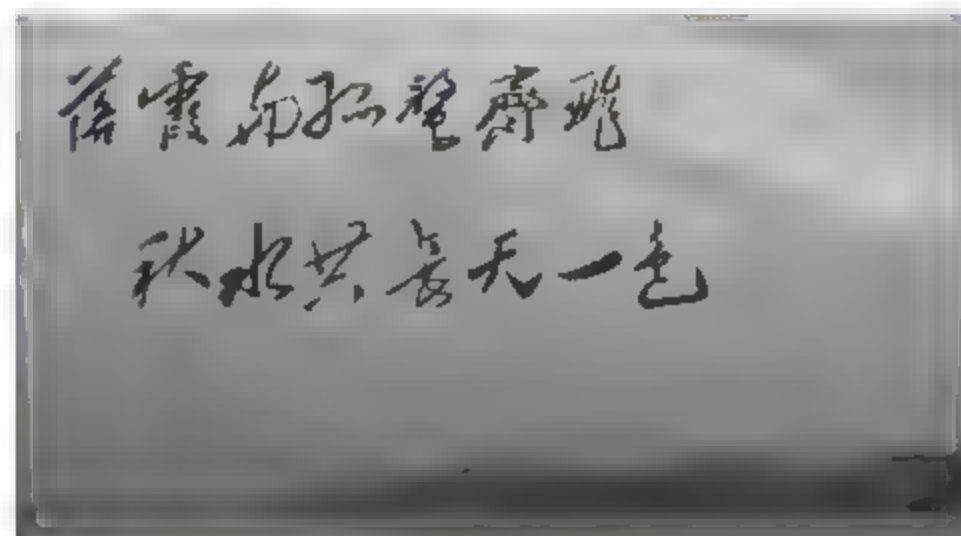 落霞与孤鹜齊飛
秋水共長天一色